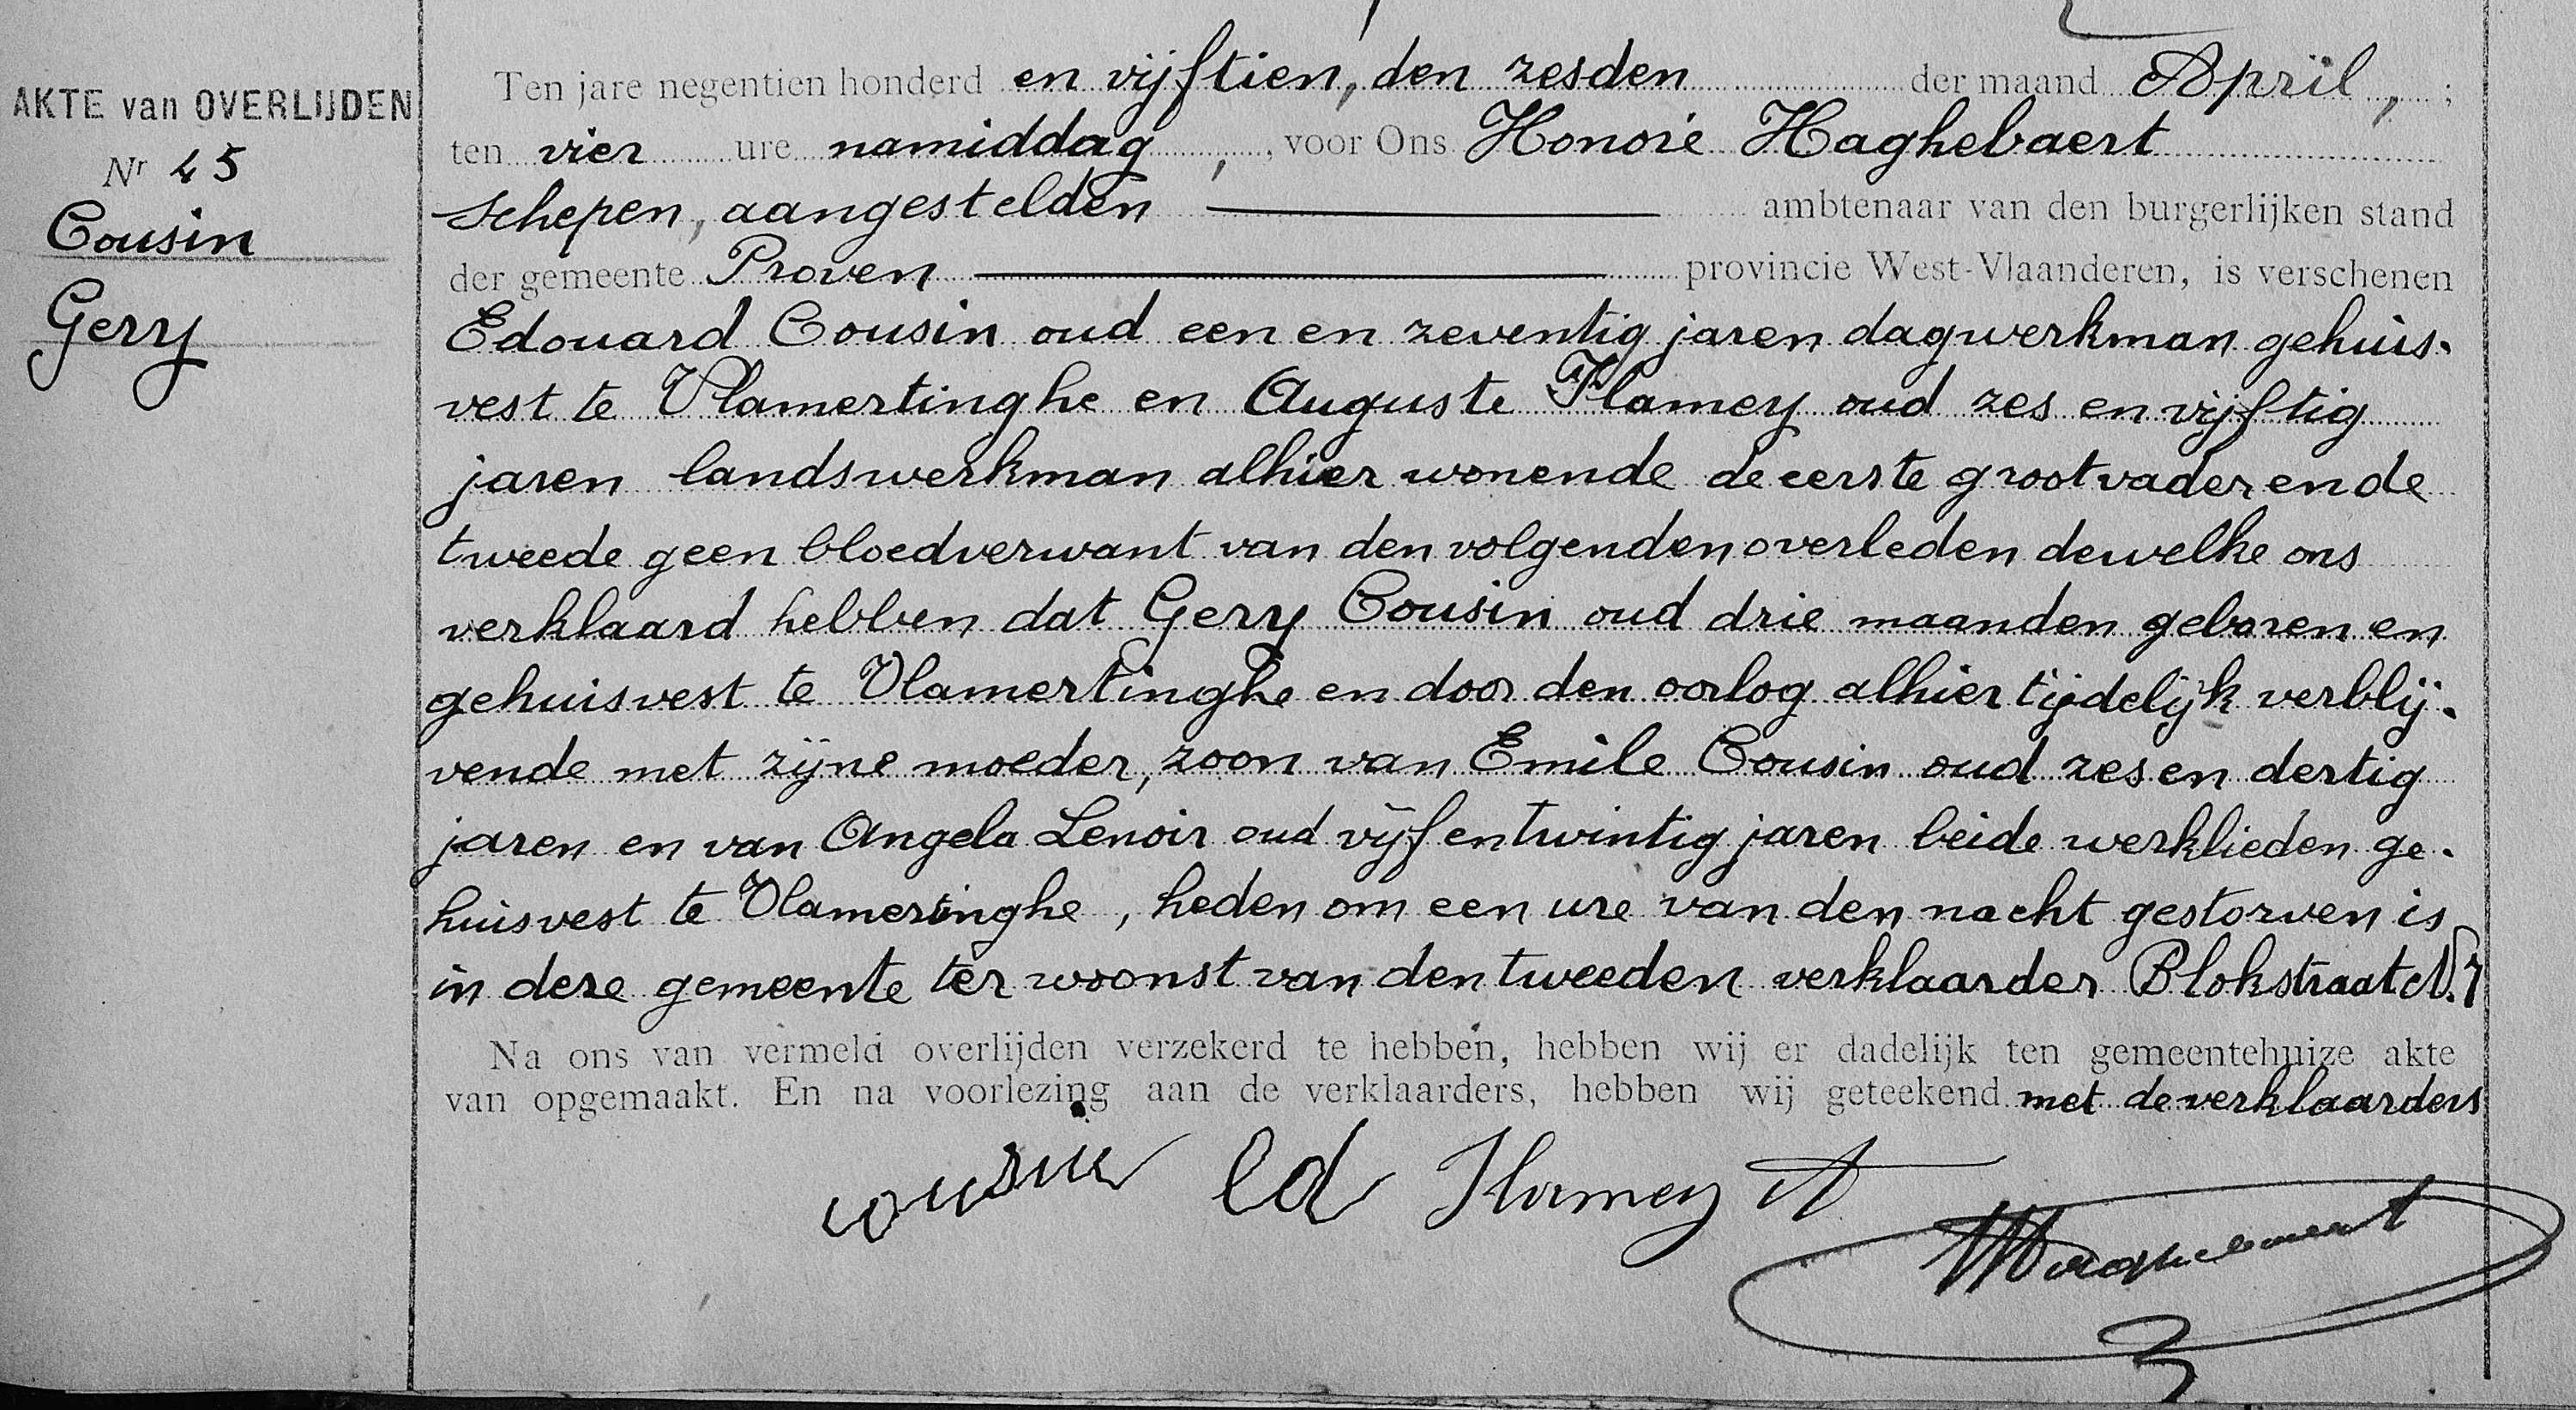 AKTE van OVERLIJDEN
Nr 45
Cousin
Gery
Ten jare negentien honderd en vijftien, den zesden der maand April, ;
ten vier ure namiddag, , voor Ons Honoré Haghebaert
schepen, aangestelden ambtenaar van den burgerlijken stand
der gemeente Proven provincie West-Vlaanderen, is verschenen
Edouard Cousin oud een en zeventig jaren dagwerkman gehuis-
vest te Vlamertinghe en Auguste Flamey oud zes en vijftig
jaren landswerkman alhier wonende de eerste grootvader en de
tweede geen bloedverwant van den volgenden overleden dewelke ons
verklaard hebben dat Gery Cousin oud drie maanden geboren en
gehuisvest te Vlamertinghe en door den oorlog alhier tijdelijk verblij-
vende met zijne moeder, zoon van Emile Cousin oud zes en dertig
jaren en van Angela Lenoir oud vijf en twintig jaren beide werklieden ge-
huisvest te Vlameringhe, heden om een ure van den nacht gestorven is
in deze gemeente ter woonst van den tweeden verklaarder Blokstraat N. 7
Na ons van vermeld overlijden verzekerd te hebben, hebben wij er dadelijk ten gemeentehuize akte
van opgemaakt. En na voorlezing aan de verklaarders, hebben wij geteekend met de verklaarders
cousin Ed Flamey A
Haghebaert